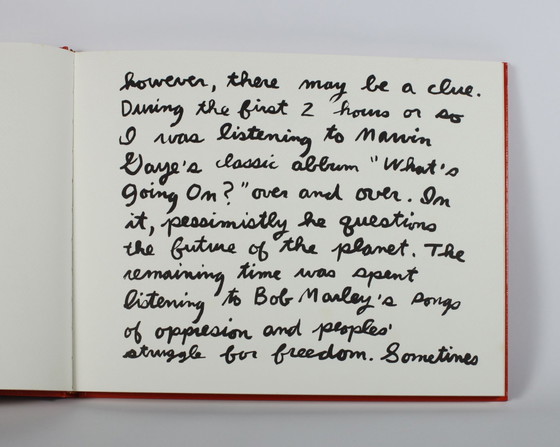 however, there may be a clue.
During the first 2 hours or so
I was listening to Marvin
Gaye's classic album "What's
going On?" over and over. In
it, pessimistly he questions
the future of the planet. The
remaining time was spent
listening to Bob Marley's songs
of oppresion and peoples'
struggle for freedom. Sometines